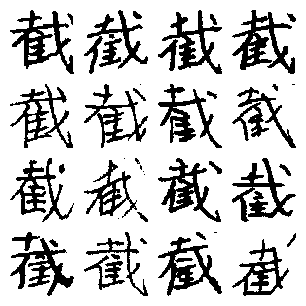 截截截截
截截截截
截截截截
截截截截